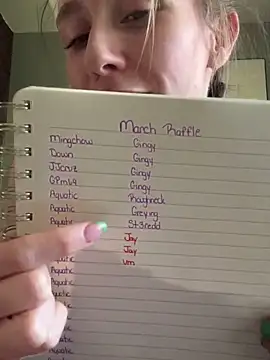 March Raffle
Mingchow Gingy
Down Gingy
JJcruz Gingy
GPm69 Gingy
Aquatic Roughneck
Aquatic Greying
Aquatic St3redd
Jay
Jay
Aquatic
Aquatic
Aquatic
Aquatic
Aquatic